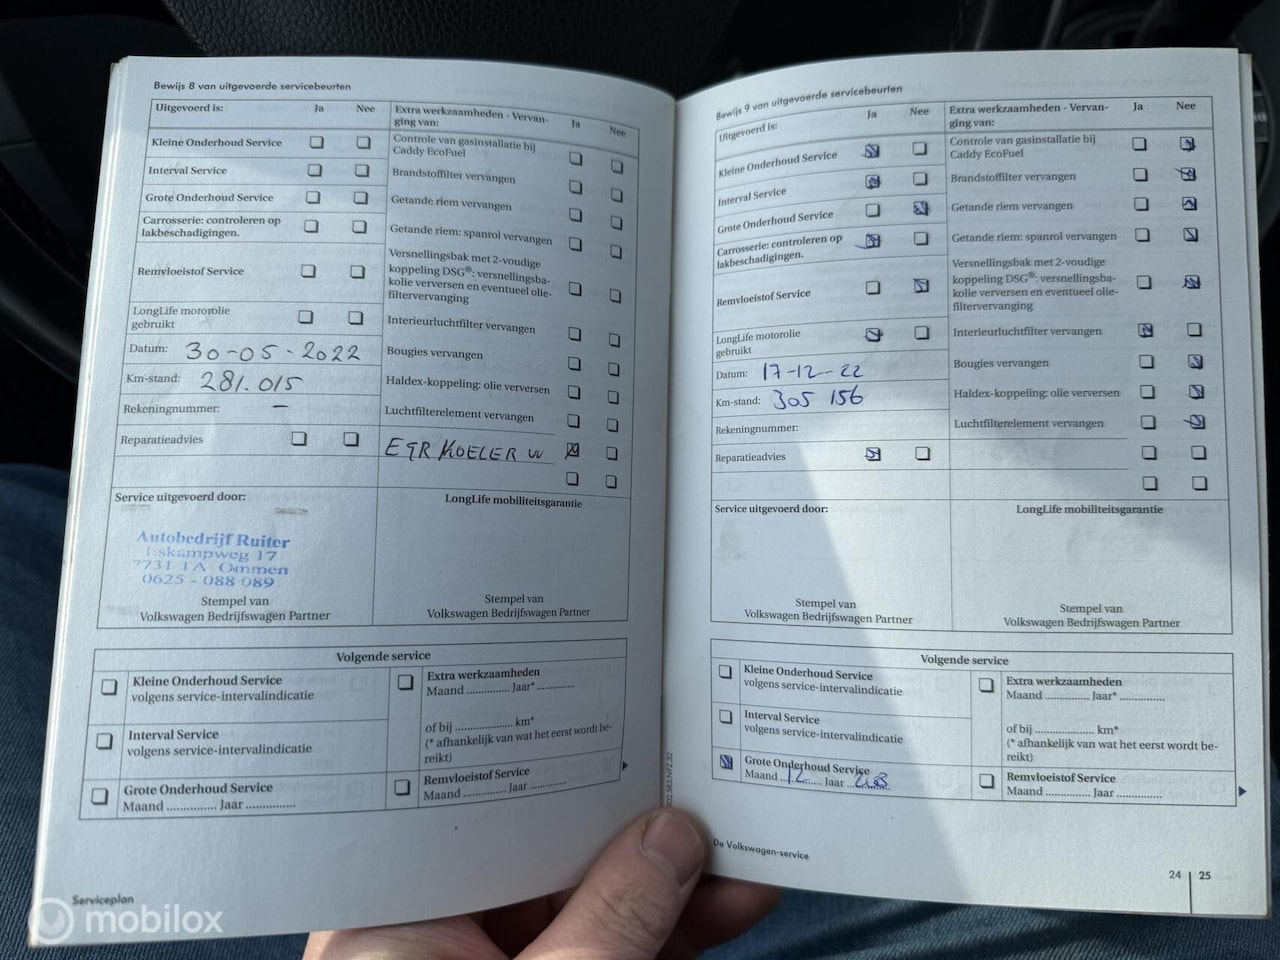 Bewijs 8 van uitgevoerde servicebeurten
Uitgevoerd is: Ja Nee
Kleine Onderhoud Service
Interval Service
Grote Onderhoud Service
Carrosserie: controleren op
lakbeschadigingen.
Remvloeistof Service
LongLife motorolie
gebruikt
Datum: 30-05-2022
Km-stand: 281.015
Rekeningnummer: –
Reparatieadvies
Extra werkzaamheden - Vervan-
ging van: Ja Nee
Controle van gasinstallatie bij
Caddy EcoFuel
Brandstoffilter vervangen
Getande riem vervangen
Getande riem: spanrol vervangen
Versnellingsbak met 2-voudige
koppeling DSG®: versnellingsba-
kolie verversen en eventueel olie-
filtervervanging
Interieurluchtfilter vervangen
Bougies vervangen
Haldex-koppeling: olie verversen
Luchtfilterelement vervangen
EGR KOELER VV
Service uitgevoerd door:
Autobedrijf Ruiter
Eskampweg 17
7731 TA Ommen
0625 - 088 089
Stempel van
Volkswagen Bedrijfswagen Partner
LongLife mobiliteitsgarantie
Stempel van
Volkswagen Bedrijfswagen Partner
Volgende service
Kleine Onderhoud Service
volgens service-intervalindicatie
Interval Service
volgens service-intervalindicatie
Grote Onderhoud Service
Maand ............. Jaar .............
Extra werkzaamheden
Maand ............. Jaar* .............
of bij .................... km*
(* afhankelijk van wat het eerst wordt be-
reikt)
Remvloeistof Service
Maand ............. Jaar .............
Serviceplan
mobilox
Bewijs 9 van uitgevoerde servicebeurten
Uitgevoerd is: Ja Nee
Kleine Onderhoud Service
Interval Service
Grote Onderhoud Service
Carrosserie: controleren op
lakbeschadigingen.
Remvloeistof Service
LongLife motorolie
gebruikt
Datum: 17-12-22
Km-stand: 305 156
Rekeningnummer:
Reparatieadvies
Extra werkzaamheden - Vervan-
ging van: Ja Nee
Controle van gasinstallatie bij
Caddy EcoFuel
Brandstoffilter vervangen
Getande riem vervangen
Getande riem: spanrol vervangen
Versnellingsbak met 2-voudige
koppeling DSG®: versnellingsba-
kolie verversen en eventueel olie-
filtervervanging
Interieurluchtfilter vervangen
Bougies vervangen
Haldex-koppeling: olie verversen
Luchtfilterelement vervangen
Service uitgevoerd door:
Stempel van
Volkswagen Bedrijfswagen Partner
LongLife mobiliteitsgarantie
Stempel van
Volkswagen Bedrijfswagen Partner
Volgende service
Kleine Onderhoud Service
volgens service-intervalindicatie
Interval Service
volgens service-intervalindicatie
Grote Onderhoud Service
Maand 12 Jaar
Extra werkzaamheden
Maand ............. Jaar* .............
of bij .................... km*
(* afhankelijk van wat het eerst wordt be-
reikt)
Remvloeistof Service
Maand ............. Jaar .............
De Volkswagen-service
24 | 25